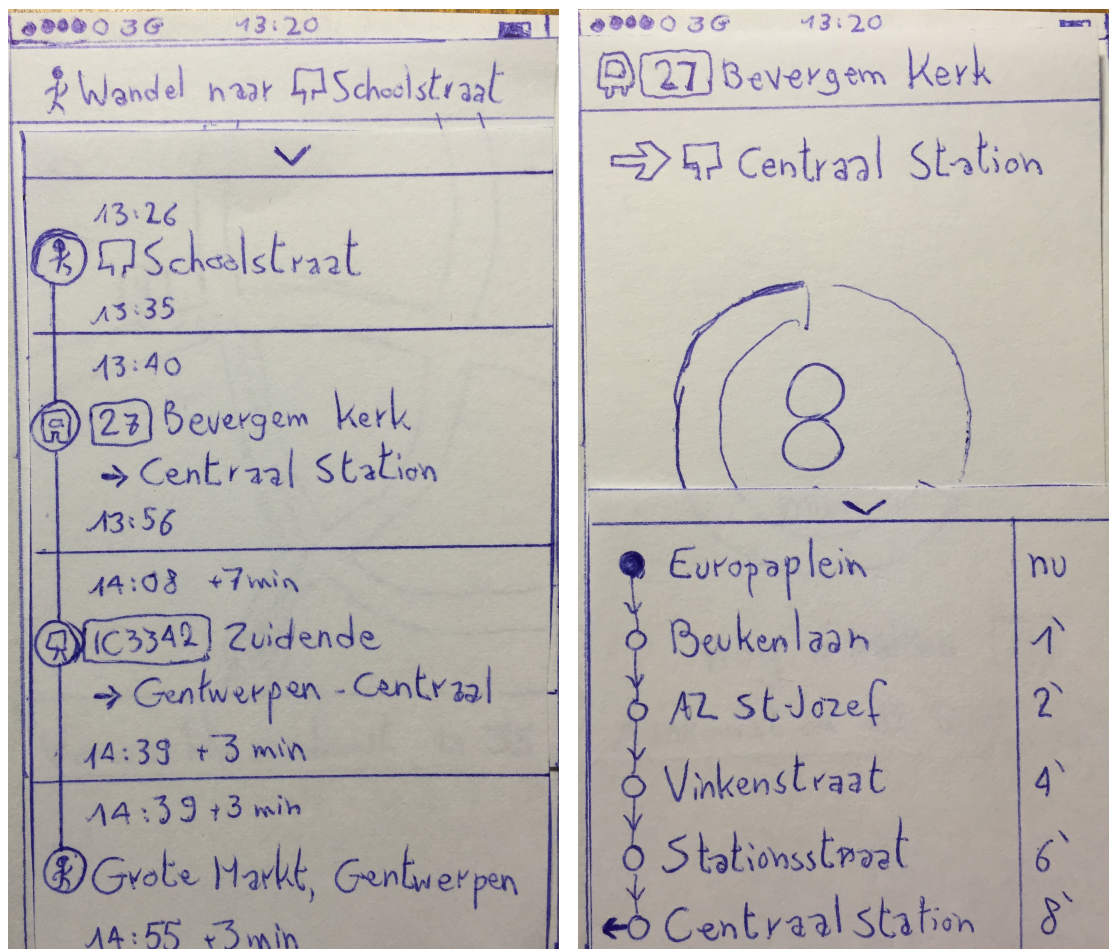 3G 13:20
Wandel naar Schoolstraat
13:26
Schoolstraat
13:35
13:40
27 Bevergem Kerk
→ Centraal Station
13:56
14:08 +7min
IC3342 Zuidende
→ Gentwerpen-Centraal
14:39 +3 min
14:39 +3 min
Grote Markt, Gentwerpen
14:55 +3 min
3G 13:20
27 Bevergem Kerk
Centraal Station
8
Europaplein nu
Beukenlaan 1`
AZ St-Jozef 2`
Vinkenstraat 4`
Stationsstraat 6`
Centraal Station 8`